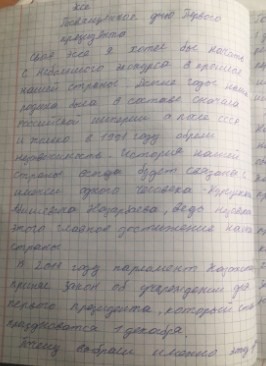 Эссе
Посвященное дню Первого
президента
Свое эссе я хотел бы начать
с небольшого экскурса в прошлое
нашей страны. Долгие годы наша
родина была в составе сначала
Российской империи а после ссср
и только в 1991 году обрели
независимость. История нашей
страны всегда будет связаны с
именем одного человека - Нурсултана
Абишевича Назарбаева, ведь
этого главное достижение нашей
страны
В 2011 году парламент Казахстана
принял закон об учреждении дня
первого президента, который стал
праздноваться 1 декабря.
Почему выбрали именно эту